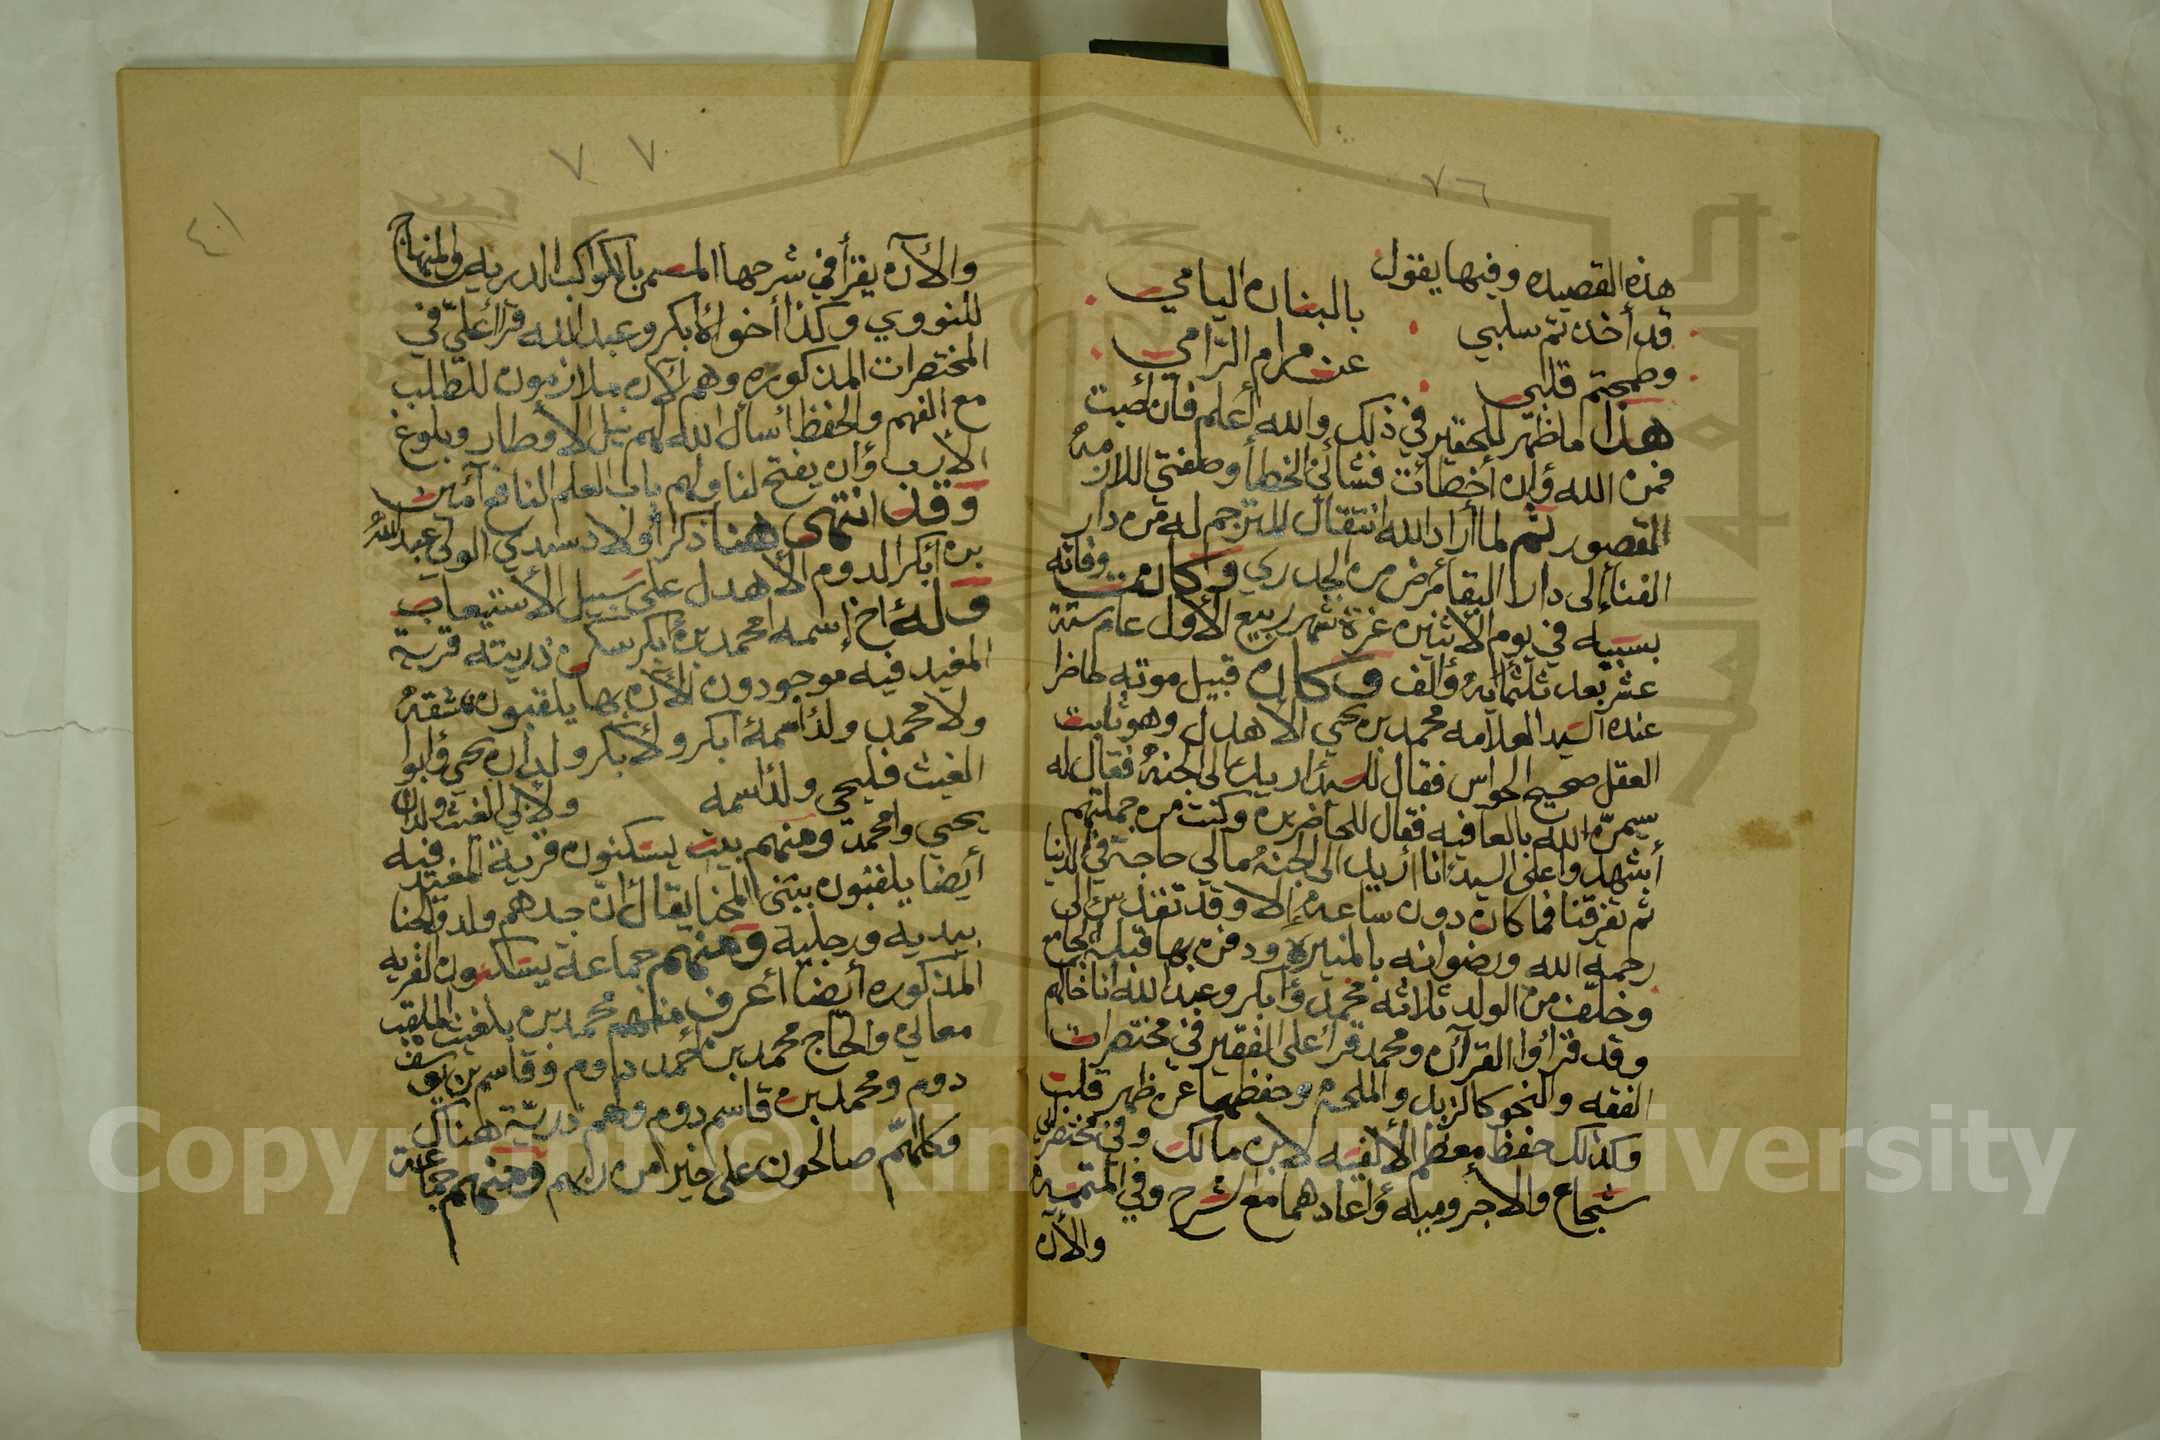 ٧٦
هذه القصيده وفيها يقول
قد أخذتم سلبي بالبنان اليامي
وطمحتم قلبي عن مرام الترامي
هذا ما ظهر للحقير في ذلك والله أعلم فان أصبت
فمن الله وإن أخطأت فشأني الخطأ وصفتي اللازمه
القصور ثم لما أراد الله انتقال المترجم له من دار
الفناء إلى دار البقا مرض من الجدري وكان وفاته
بسببه في يوم الاثنين غرة شهر ربيع الأول عام ستة
عشر بعد ثلثمائة وألف وكان قبيل موته حاضرا
عنده السيد العلامه محمد بن يحيى الاهدل وهو ثابت
العقل صحيح الحواس فقال للسيد اريد الى الجنه فقال له
سيمن الله بالعافيه فقال للحاضرين وكنت من جملتهم
أشهدوا على السيد انا اريد الى الجنه مالي حاجة في الدنيا
ثم تفرقنا فما كان دون ساعه إلا وقد تقدس الى
رحمة الله ورضوانه بالمنيره ودفن بها قبلة الجامع
وخلف من الولد ثلاثه محمد وأبكر وعبد الله أنا خالهم
وقد قرأوا القرآن ومحمد قرأ على الفقير في مختصرات
الفقه والنحو كالزبد والملحه وحفظها عن ظهر قلب
وكذلك حفظ معظم الألفيه لابن مالك وفي مختصر أبي
شجاع والاجروميه وأعادهما مع الشرح وفي المتممه
والآن
٧٧
٤١
والآن يقرأ في شرحها المسمى بالكواكب الدريه والمنهاج
للنووي وكذا أخواه أبكر وعبد الله قرأ علي في
المختصرات المذكوره وهم الآن ملازمون للطلب
مع الفهم والحفظ اسأل الله لهم نيل الأوطار وبلوغ
الأرب وان يفتح لنا ولهم باب العلم النافع آمين
وقد انتهى هنا ذكر أولاد سيدي الولي عبد الله
بن أبكر الدوم الأهدل على سبيل الأستيعاب
وله أخ إسمه محمد بن أبكر سكن ذريته قرية
المغيد فيه موجودون الآن بها يلقبون
ولا محمد ولد اسمه ابكر ولأبكر ولدان يحيى وأبوا
الغيث فليحيى ولد اسمه ولابي الغيث ولدان
يحيى ومحمد ومنهم بيت يسكنون قرية المغيد فيه
أيضا يلقبون ببني المحنا يقال أن جدهم ولد محنا
بيديه ورجليه ومنهم جماعة يسكنون القريه
المذكوره أيضا أعرف منهم محمد بن بلغيث الملقب
معافي والحاج محمد بن أحمد دوم وقاسم بن يوسف
دوم ومحمد بن قاسم دوم ولهم ذرية هناك
وكلهم صالحون على خير من ربهم ومنهم جماعة
Copyright © King Saud University